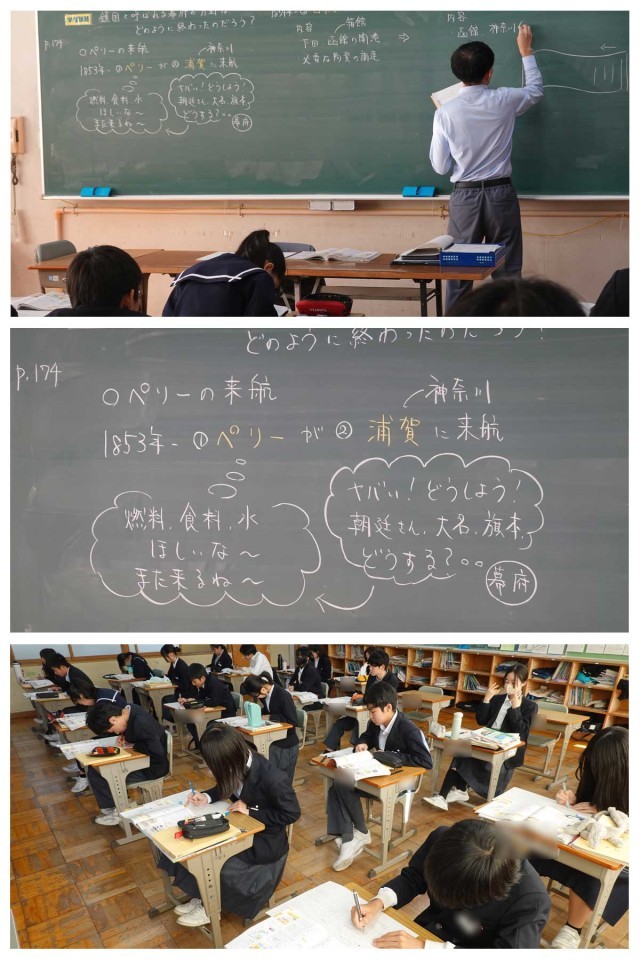 学習課題 鎖国と呼ばれる幕府の
どのように終わったのだろう?
p.174
○ペリーの来航
神奈川
1853年-①ペリーが②浦賀に来航
燃料、食料、水
ほしいな〜
また来るね〜
ヤバい!どうしよう!
朝廷さん、大名、旗本、
どうする?‥
幕府
内容
下田 函館の開港
⇒
内容
函館 神奈川
どのように終わったのだろう?
p.174
○ペリーの来航
神奈川
1853年-①ペリーが②浦賀に来航
燃料、食料、水
ほしいな〜
また来るね〜
ヤバい!どうしよう!
朝廷さん、大名、旗本、
どうする?‥
幕府